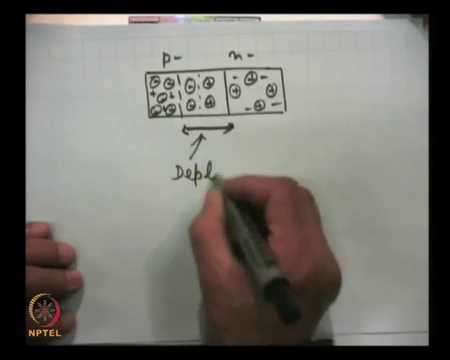 p- n-
Depl
NPTEL